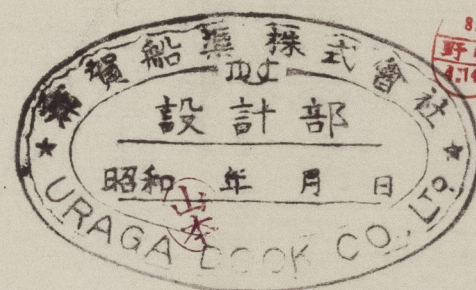 浦賀船渠株式會社
設計部
昭和 年 月 日
山本
URAGA DOCK CO., LTD.
8.
野
4.14